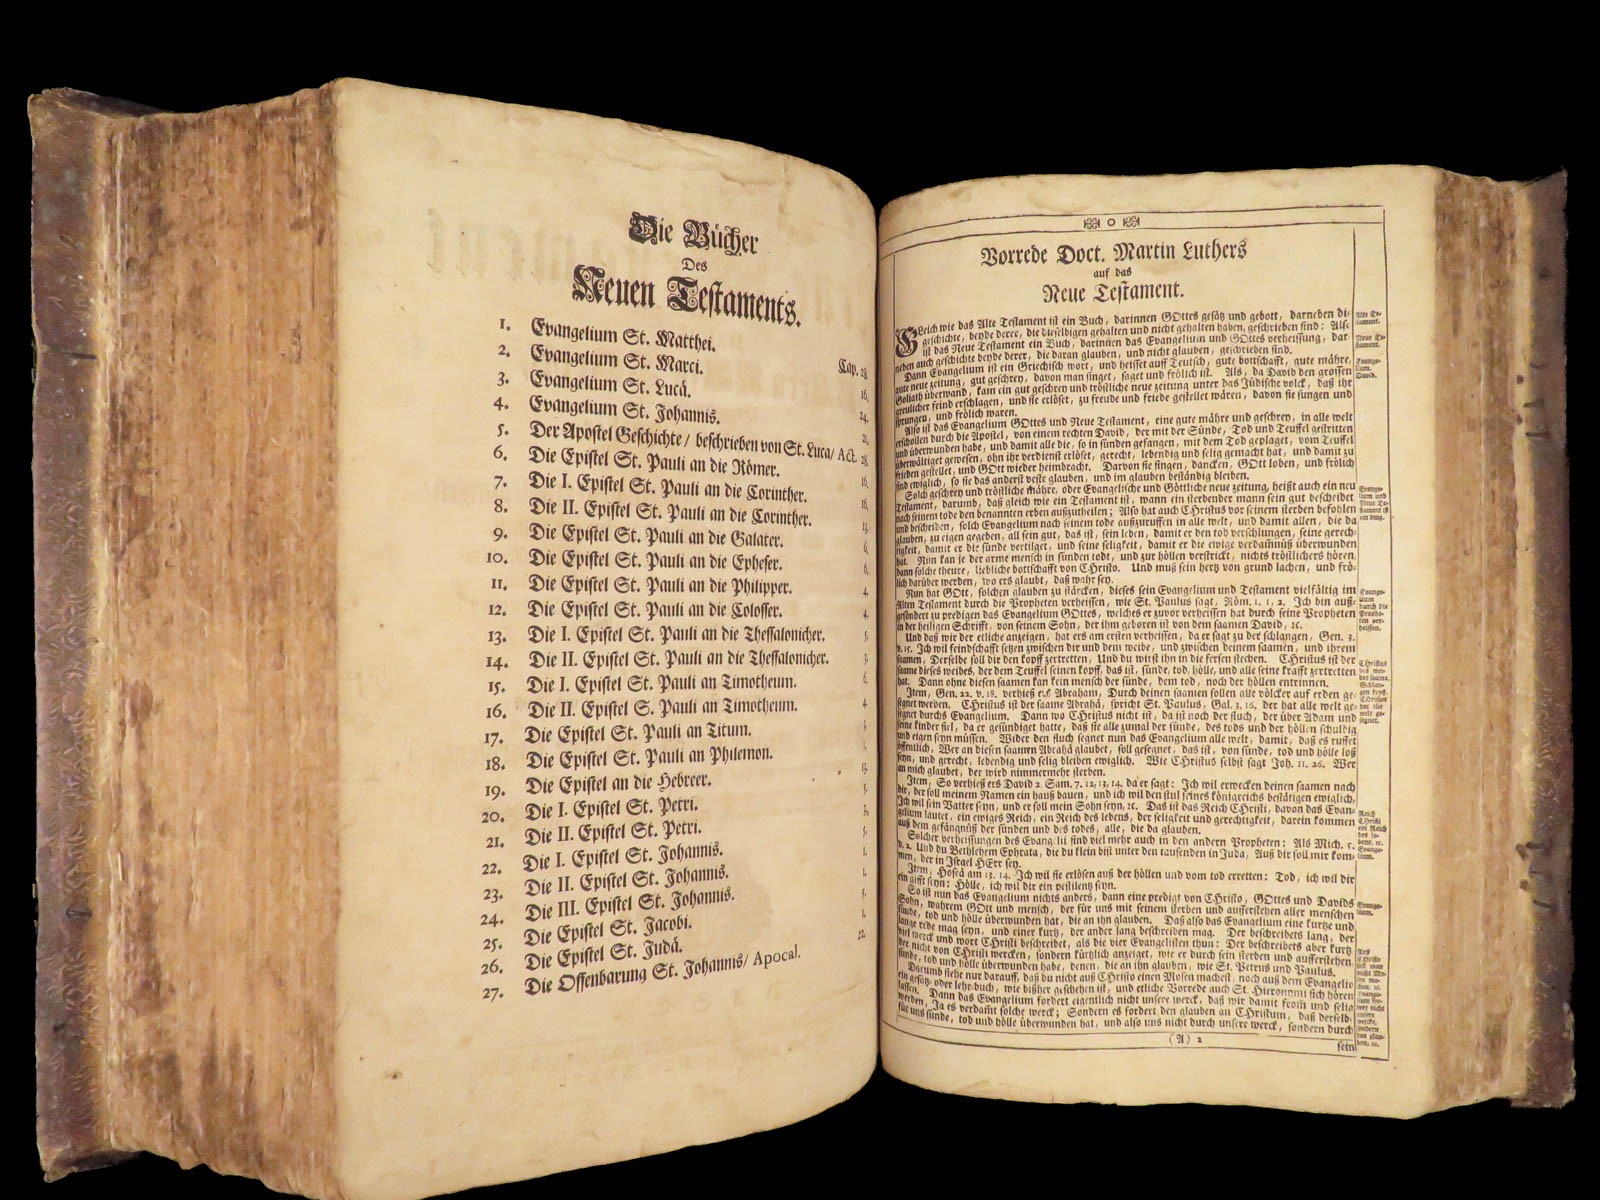 Die Bücher
Des
Neuen Testaments.
1. Evangelium St. Matthei. Cap. 28
2. Evangelium St. Marci. 16.
3. Evangelium St. Lucä. 24.
4. Evangelium St. Johannis. 21.
5. Der Apostel Geschichte / beschrieben von St. Luca / Act. 28.
6. Die Epistel St. Pauli an die Römer. 16.
7. Die I. Epistel St. Pauli an die Corinther. 16.
8. Die II. Epistel St. Pauli an die Corinther. 13.
9. Die Epistel St. Pauli an die Galater. 6.
10. Die Epistel St. Pauli an die Epheser. 6.
11. Die Epistel St. Pauli an die Philipper. 4.
12. Die Epistel St. Pauli an die Colosser. 4.
13. Die I. Epistel St. Pauli an die Thessalonicher. 5.
14. Die II. Epistel St. Pauli an die Thessalonicher. 3.
15. Die I. Epistel St. Pauli an Timotheum. 6.
16. Die II. Epistel S. Pauli an Timotheum. 4.
17. Die Epistel St. Pauli an Titum. 3.
18. Die Epistel St. Pauli an Philemon. 1.
19. Die Epistel an die Hebreer. 13.
20. Die I. Epistel St. Petri. 5.
21. Die II. Epistel St. Petri. 3.
22. Die I. Epistel St. Johannis. 5.
23. Die II. Epistel St. Johannis. 1.
24. Die III. Epistel St. Johannis. 1.
25. Die Epistel St. Jacobi. 5.
26. Die Epistel St. Judä. 1.
27. Die Offenbarung St. Johannis / Apocal. 22.
Vorrede Doct. Martin Luthers
auf das
Neue Testament.
Gleich wie das Alte Testament ist ein Buch, darinnen GOttes gesätz und gebott, darneben di-
geschichte, beyde derer, die dieselbigen gehalten und nicht gehalten haben, geschrieben sind: Als-
ist das Neue Testament ein Buch, darinnen das Evangelium und GOttes verheissung, dar-
neben auch geschichte beyde derer, die daran glauben, und nicht glauben, geschrieben sind.
Dann Evangelium ist ein Griechisch wort, und heisset auf Teutsch, gute bottschafft, gute mähre,
gute neue zeitung, gut geschrey, davon man singet, saget und frölich ist. Als, da David den grossen
Goliath überwand, kam ein gut geschrey und tröstliche neue zeitung unter das Jüdische volck, daß ihr
greulicher feind erschlagen, und sie erlöset, zu freude und friede gestellet wären, davon sie sungen und
sprungen, und frölich waren.
Also ist das Evangelium GOttes und Neue Testament, eine gute mähre und geschrey, in alle welt
erschollen durch die Apostel, von einem rechten David, der mit der Sünde, Tod und Teuffel gestritten
und überwunden habe, und damit alle die, so in sünden gefangen, mit dem Tod geplaget, vom Teuffel
überwältiget gewesen, ohn ihr verdienst erlöset, gerecht, lebendig und selig gemacht hat, und damit zu
frieden gestellet, und GOtt wieder heimbracht. Darvon sie singen, dancken, GOtt loben, und frölich
sind ewiglich, so sie das anderst veste glauben, und im glauben beständig bleiben.
Solch geschrey und tröstliche mähre, oder Evangelische und Göttliche neue zeitung, heißt auch ein neu
Testament, darumb, daß gleich wie ein Testament ist, wann ein sterbender mann sein gut bescheidet
nach seinem tode den benannten erben außzutheilen; Also hat auch CHristus vor seinem sterben befohlen
und bescheiden, solch Evangelium nach seinem tode außzuruffen in alle welt, und damit allen, die da
glauben, zu eigen gegeben, all sein gut, das ist, sein leben, damit er den tod verschlungen, seine gerech-
tigkeit, damit er die sünde vertilget, und seine seligkeit, damit er die ewige verdamnüß überwunden
hat. Nun kan je der arme mensch in sünden todt, und zur höllen verstrickt, nichts tröstlichers hören,
dann solche theure, liebliche bottschafft von CHristo. Und muß sein hertz von grund lachen, und frö-
lich darüber werden, wo ers glaubt, daß wahr sey.
Nun hat GOtt, solchen glauben zu stärcken, dieses sein Evangelium und Testament vielfältig im
Alten Testament durch die Propheten verheissen, wie St. Paulus sagt, Röm. 1. 1, 2. Ich bin auß-
gesondert zu predigen das Evangelium GOttes, welches er zuvor verheissen hat durch seine Propheten
in der heiligen Schrifft, von seinem Sohn, der ihm geboren ist von dem saamen David, ꝛc.
Und daß wir der etliche anzeigen, hat ers am ersten verheissen, da er sagt zu der schlangen, Gen. 3.
v. 15. Ich wil feindschafft setzen zwischen dir und dem weibe, und zwischen deinem saamen, und ihrem
saamen, Derselbe soll dir den kopff zertretten, Und du wirst ihn in die fersen stechen. CHristus ist der
saame dieses weibes, der dem Teuffel seinen kopff, das ist, sünde, tod, hölle, und alle seine krafft zertretten
hat. Dann ohne diesen saamen kan kein mensch der sünde, dem tod, noch der höllen entrinnen.
Item, Gen. 22. v. 18. verhieß ers Abraham, Durch deinen saamen sollen alle völcker auf erden ge-
segnet werden. CHristus ist der saame Abrahä, spricht St. Paulus, Gal. 3. 16. der hat alle welt ge-
segnet durchs Evangelium. Dann wo CHristus nicht ist, da ist noch der fluch, der über Adam und
seine kinder fiel, da er gesündiget hatte, daß sie alle zumal der sünde, des tods und der höllen schuldig
und eigen seyn müssen. Wider den fluch segnet nun das Evangelium alle welt, damit, daß es ruffet
öffentlich, Wer an diesen saamen Abrahä glaubet, soll gesegnet, das ist, von sünde, tod und hölle loß
seyn, und gerecht, lebendig und selig bleiben ewiglich. Wie CHristus selbst sagt Joh. 11. 26. Wer
an mich glaubet, der wird nimmermehr sterben.
Item, So verhieß ers David 2. Sam. 7. 12, 13, 14. da er sagt: Ich wil erwecken deinen saamen nach
dir, der soll meinem Namen ein hauß bauen, und ich wil den stul seines königreichs bestätigen ewiglich,
Ich wil sein Vatter seyn, und er soll mein Sohn seyn, ꝛc. Das ist das Reich CHristi, davon das Evan-
gelium lautet, ein ewiges Reich, ein Reich des lebens, der seligkeit und gerechtigkeit, darein kommen
auß dem gefängnüß der sünden und des todes, alle, die da glauben.
Solcher verheissungen des Evangelii sind viel mehr auch in den andern Propheten: Als Mich. 5.
v. 2. Und du Bethlehem Ephrata, die du klein bist unter den tausenden in Juda, Auß dir soll mir kom-
men, der in Israel HErr sey.
Item, Hoseä am 13. 14. Ich wil sie erlösen auß der höllen und vom tod erretten: Tod, ich wil dir
ein gifft seyn: Hölle, ich wil dir ein pestilentz seyn.
So ist nun das Evangelium nichts anders, dann eine predigt von CHristo, GOttes und Davids
Sohn, wahrem GOtt und mensch, der für uns mit seinem sterben und aufferstehen aller menschen
sünde, tod und hölle überwunden hat, die an ihn glauben. Daß also das Evangelium eine kurtze und
lange rede mag seyn, und einer kurtz, der ander lang beschreiben mag. Der beschreibets lang, der
viel werck und wort CHristi beschreibet, als die vier Evangelisten thun: Der beschreibets aber kurtz,
der nicht von CHristi wercken, sondern kürtzlich anzeiget, wie er durch sein sterben und aufferstehen
sünde, tod und hölle überwunden habe, denen, die an ihn glauben, wie St. Petrus und Paulus.
Darumb siehe nur darauff, daß du nicht auß CHristo einen Mosen machest, noch auß dem Evangelio
ein gesätz- oder lehr-buch, wie bißher geschehen ist, und etliche Vorrede auch St. Hieronymi sich hören
lassen. Dann das Evangelium fordert eigentlich nicht unsere werck, daß wir damit from und selig
werden, Ja es verdamt solche werck; Sondern es fordert den glauben an CHristum, daß derselb
für uns sünde, tod und hölle überwunden hat, und also uns nicht durch unsere werck, sondern durch
(A) 2
sein
Alte Te-
stament.
Neue Te-
stament.
Evange-
lium.
David.
Evange-
lium und
Neue Te-
stament ist
ein ding.
Evange-
lium
durch die
Prophe-
ten ver-
heissen.
Christus
des wei-
bes saame.
Reich
CHristi
ein Reich
des le-
bens, ꝛc.
Evange-
lium.
Evange-
lium.